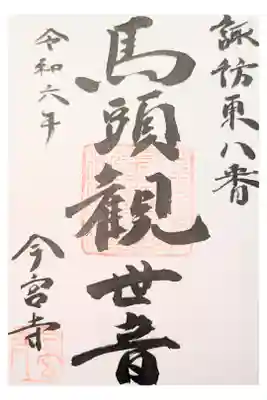 諏訪東八番
馬頭觀世音
令和六年
今宮寺